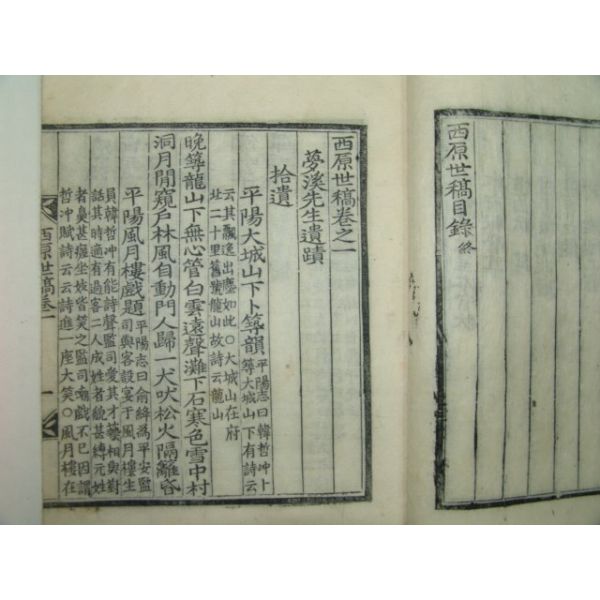 西原世稿目錄 終
西原世稿卷之一
夢溪先生遺蹟
拾遺
平陽大城山下卜築韻 平陽志曰韓哲冲卜
築大城山下有詩云
云其飄逸出塵如此○大城山在府
北二十里舊號龍山故詩云龍山
晩築龍山下無心管白雲遠聲灘下石寒色雪中村
洞月閒窺戶林風自動門人歸一犬吠松火隔籬昏
平陽風月樓戱題 平陽志曰俞絳為平安監
司與客設宴于風月樓生
員韓哲冲有能詩聲監司愛其才藝相與對
話其時適有過客二人成姓者貌甚縛元姓
者鼻甚坐妓皆笑之監司戱不已因謂
哲冲賦詩云云詩進一座大笑○風月樓在
西原世稿卷一
一